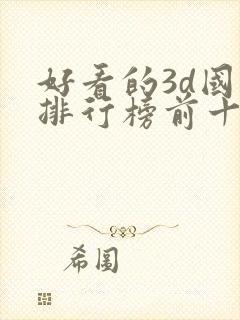 好看的3d國
排行榜前十
希圖